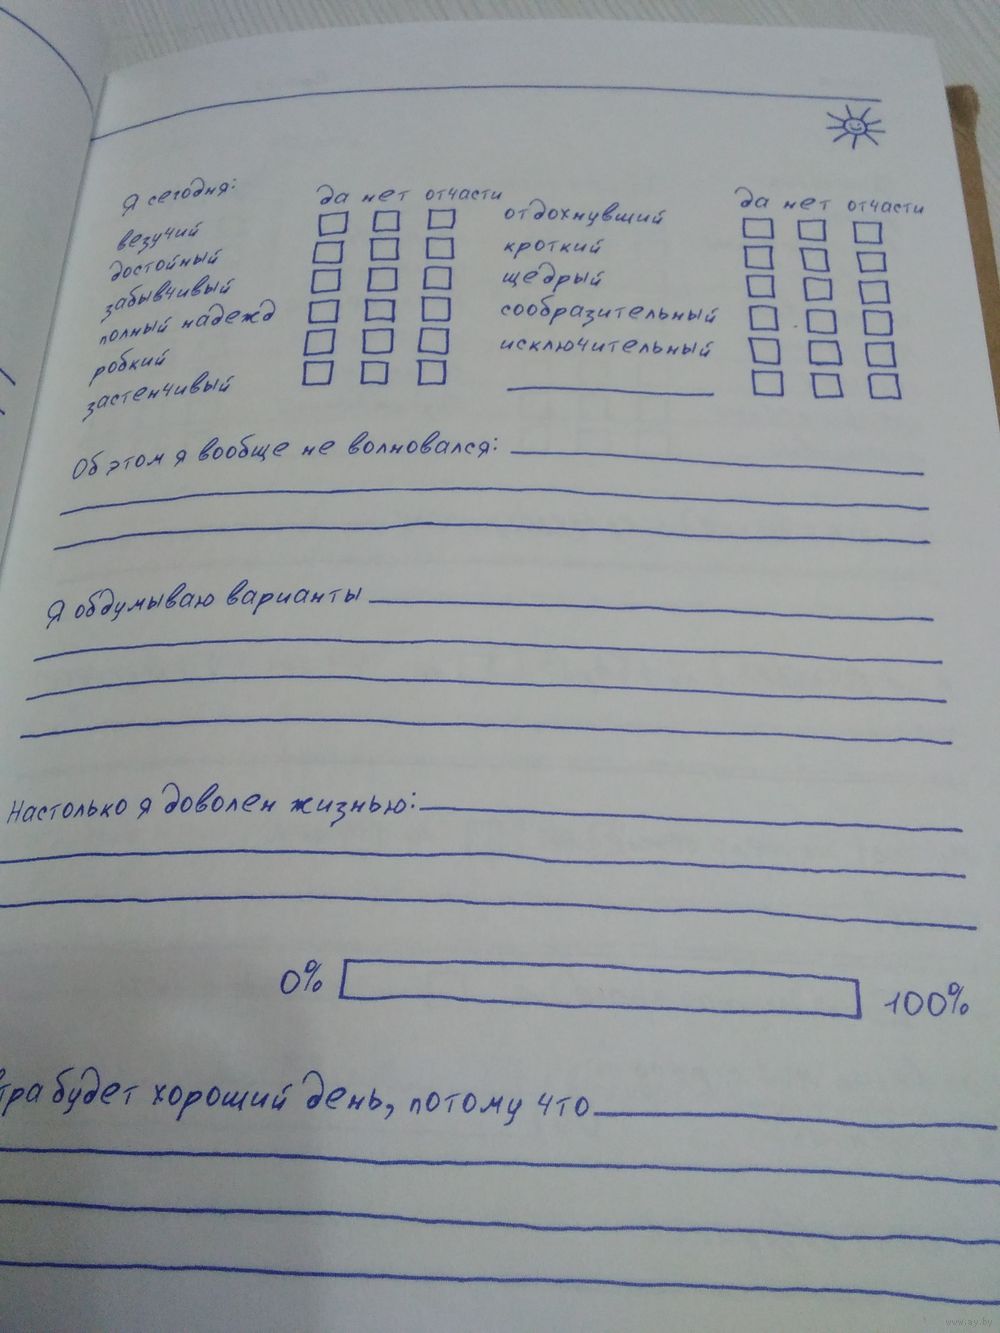 Я сегодня:
да нет отчасти
везучий
достойный
забывчивый
полный надежд
робкий
застенчивый
да нет отчасти
отдохнувший
кроткий
щедрый
сообразительный
исключительный
Об этом я вообще не волновался:
Я обдумываю варианты
Настолько я доволен жизнью:
0% 100%
тра будет хороший день, потому что
www.ay.by